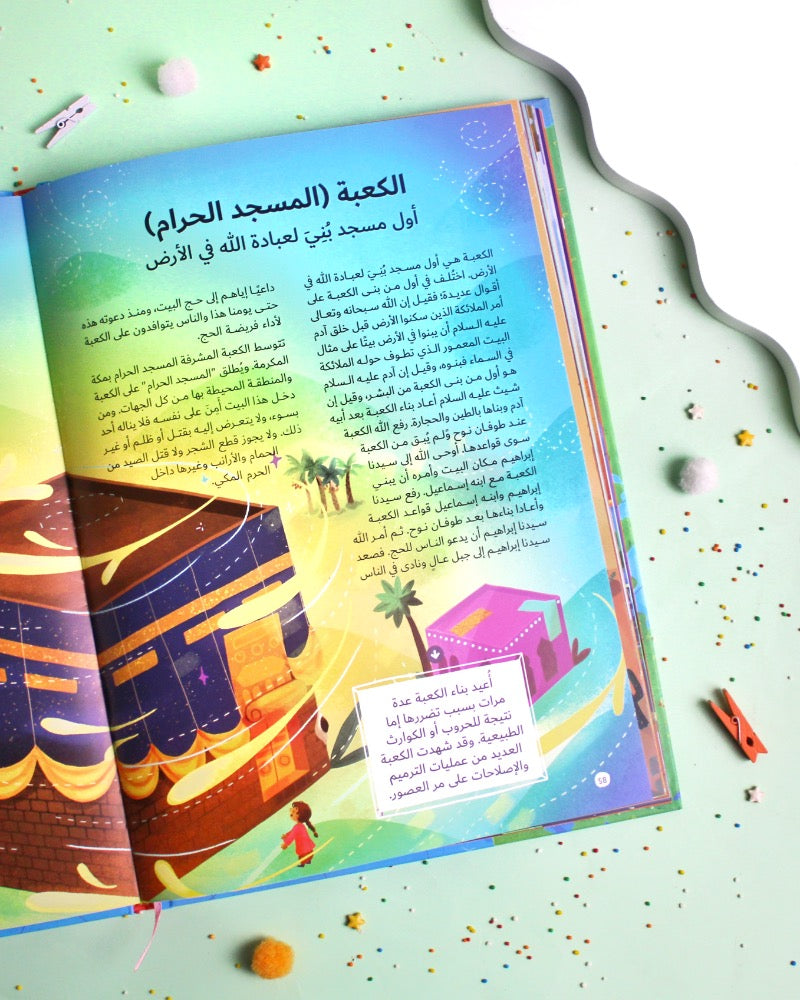 الكعبة (المسجد الحرام)
أول مسجد بُنِيَ لعبادة الله في الأرض
الكعبة هي أول مسجد بُنِيَ لعبادة الله في
الأرض. اختُلف في أول من بنى الكعبة على
أقوال عديدة؛ فقيل إن الله سبحانه وتعالى
أمر الملائكة الذين سكنوا الأرض قبل خلق آدم
عليه السلام أن يبنوا في الأرض بيتًا على مثال
البيت المعمور الذي تطوف حوله الملائكة
في السماء فبنوه، وقيل إن آدم عليه السلام
هو أول من بنى الكعبة من البشر، وقيل إن
شيث عليه السلام أعاد بناء الكعبة بعد أبيه
آدم وبناها بالطين والحجارة. رفع الله الكعبة
عند طوفان نوح ولم يُبقِ من الكعبة
سوى قواعدها. أوحى الله إلى سيدنا
إبراهيم مكان البيت وأمره أن يبني
الكعبة مع ابنه إسماعيل. رفع سيدنا
إبراهيم وابنه إسماعيل قواعد الكعبة
وأعادا بناءها بعد طوفان نوح. ثم أمر الله
سيدنا إبراهيم أن يدعو الناس للحج. فصعد
سيدنا إبراهيم إلى جبل عالٍ ونادى في الناس
داعيًا إياهم إلى حج البيت، ومنذ دعوته هذه
حتى يومنا هذا والناس يتوافدون على الكعبة
لأداء فريضة الحج.
تتوسط الكعبة المشرفة المسجد الحرام بمكة
المكرمة. ويُطلق "المسجد الحرام" على الكعبة
والمنطقة المحيطة بها من كل الجهات. ومن
دخل هذا البيت أَمِنَ على نفسه فلا يناله أحد
بسوء، ولا يتعرض إليه بقتل أو ظلم أو غير
ذلك. ولا يجوز قطع الشجر ولا قتل الصيد من
الحمام والأرانب وغيرها داخل
الحرم المكي.
أُعيد بناء الكعبة عدة
مرات بسبب تضررها إما
نتيجة للحروب أو الكوارث
الطبيعية. وقد شهدت الكعبة
العديد من عمليات الترميم
والإصلاحات على مر العصور.
58